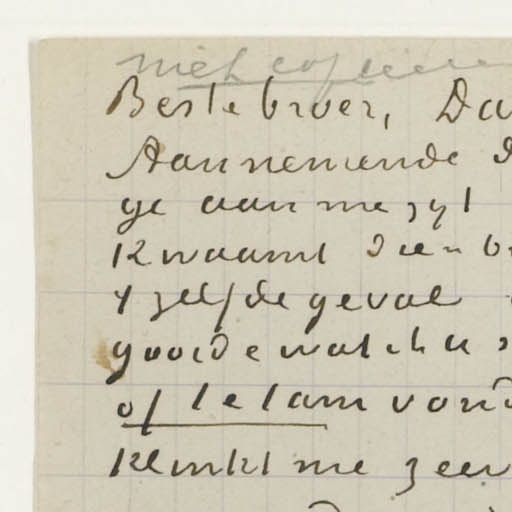 niet copieeren
Beste broer, Da
Aannemende d
ge aan me zyt
Kwaamt dien b
t zelfde geval
gooide wat che
of te lam vond
Klinkt me zeer